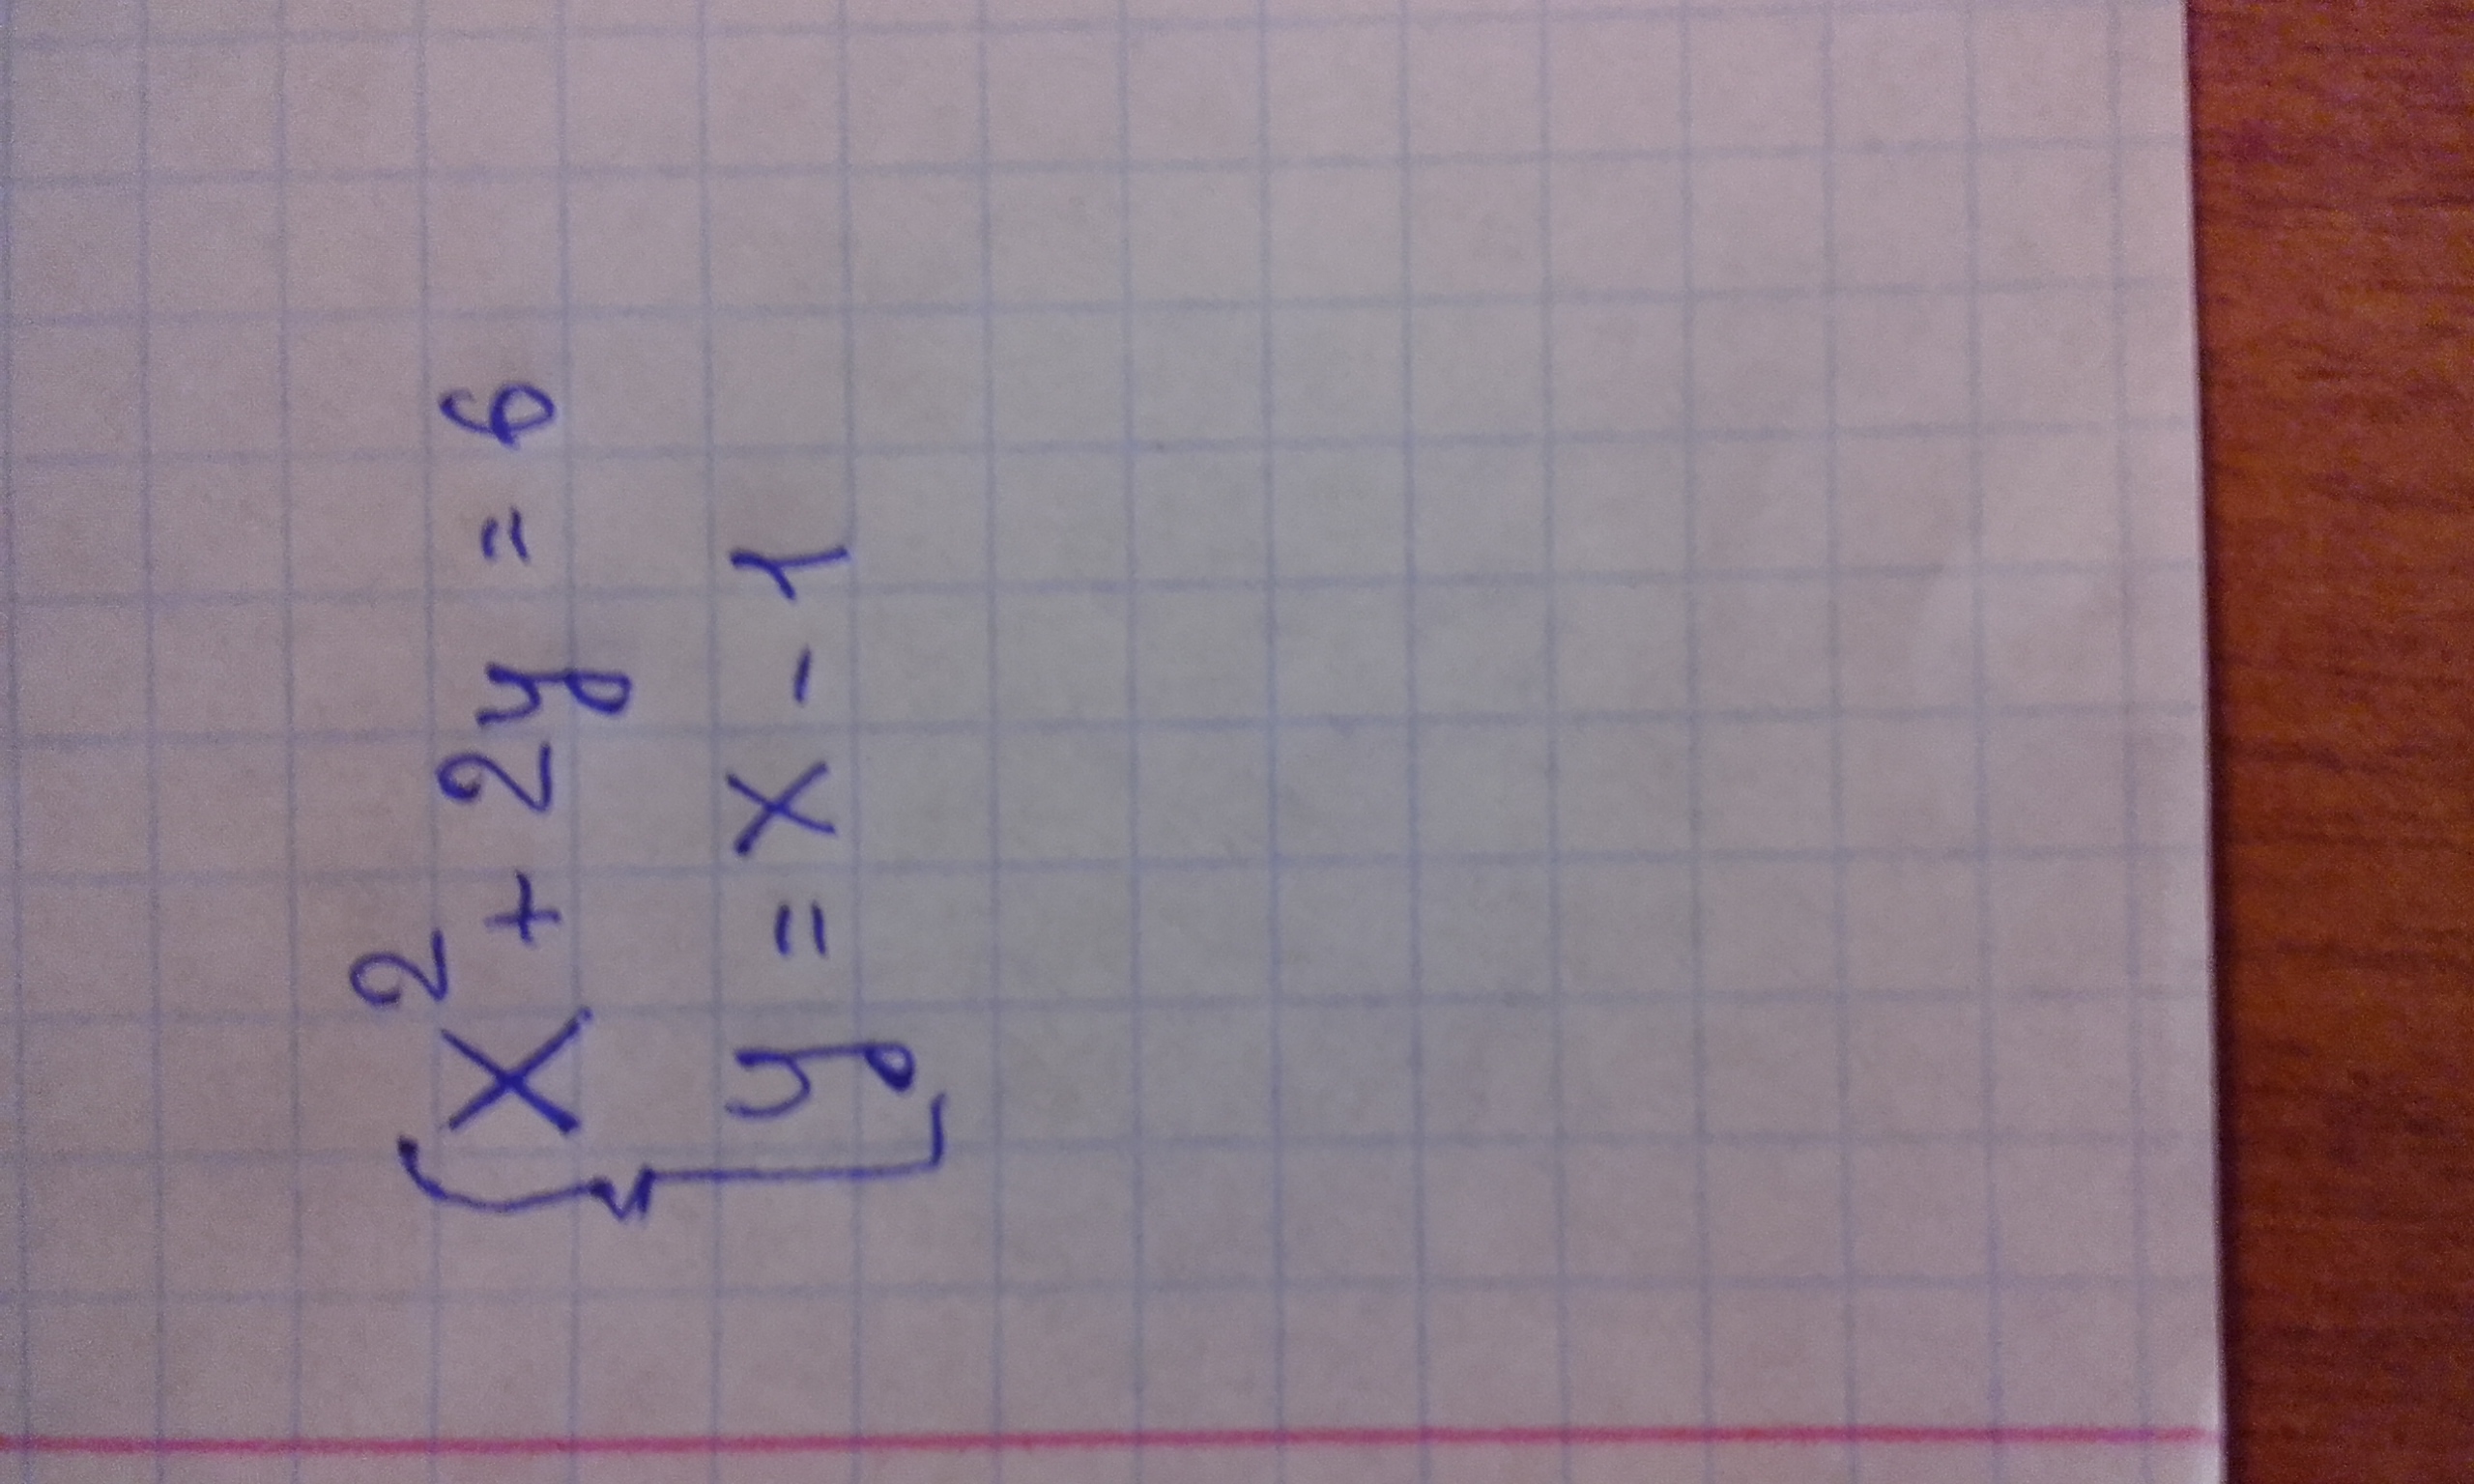 x² + 2y = 6
y = x - 1